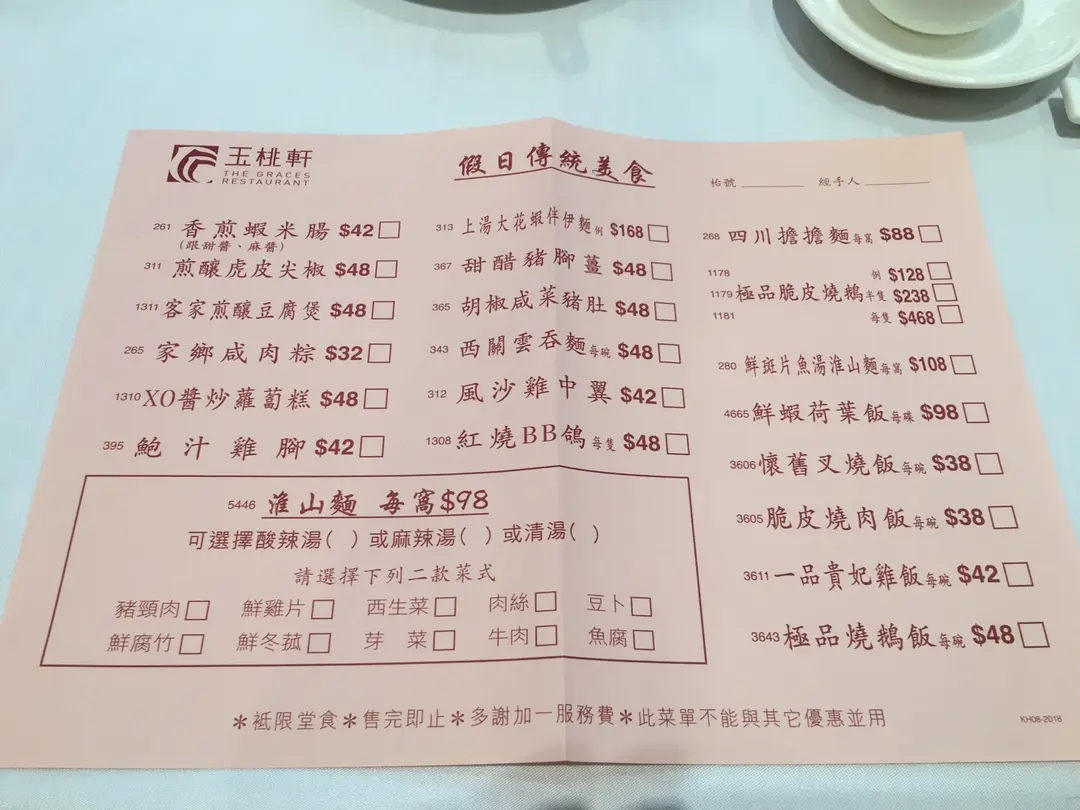 玉桃軒
THE GRACES
RESTAURANT
假日傳統美食
枱號 ________ 經手人 ________
261 香煎蝦米腸 $42 □
(跟甜醬、麻醬)
311 煎釀虎皮尖椒 $48 □
1311 客家煎釀豆腐煲 $48 □
265 家鄉咸肉粽 $32 □
1310 XO醬炒蘿蔔糕 $48 □
395 鮑汁雞腳 $42 □
313 上湯大花蝦伴伊麵 例 $168 □
367 甜醋豬腳薑 $48 □
365 胡椒咸菜豬肚 $48 □
343 西關雲吞麵 每碗 $48 □
312 風沙雞中翼 $42 □
1308 紅燒BB鴿 每隻 $48 □
268 四川擔擔麵 每窩 $88 □
1178 例 $128 □
1179 極品脆皮燒鵝 半隻 $238 □
1181 每隻 $468 □
280 鮮斑片魚湯淮山麵 每窩 $108 □
4665 鮮蝦荷葉飯 每碟 $98 □
3606 懷舊叉燒飯 每碗 $38 □
3605 脆皮燒肉飯 每碗 $38 □
3611 一品貴妃雞飯 每碗 $42 □
3643 極品燒鵝飯 每碗 $48 □
5446 淮山麵 每窩$98
可選擇酸辣湯( )或麻辣湯( )或清湯( )
請選擇下列二款菜式
豬頸肉 □ 鮮雞片 □ 西生菜 □ 肉絲 □ 豆卜 □
鮮腐竹 □ 鮮冬菰 □ 芽菜 □ 牛肉 □ 魚腐 □
*祗限堂食*售完即止*多謝加一服務費*此菜單不能與其它優惠並用
KH08-2018